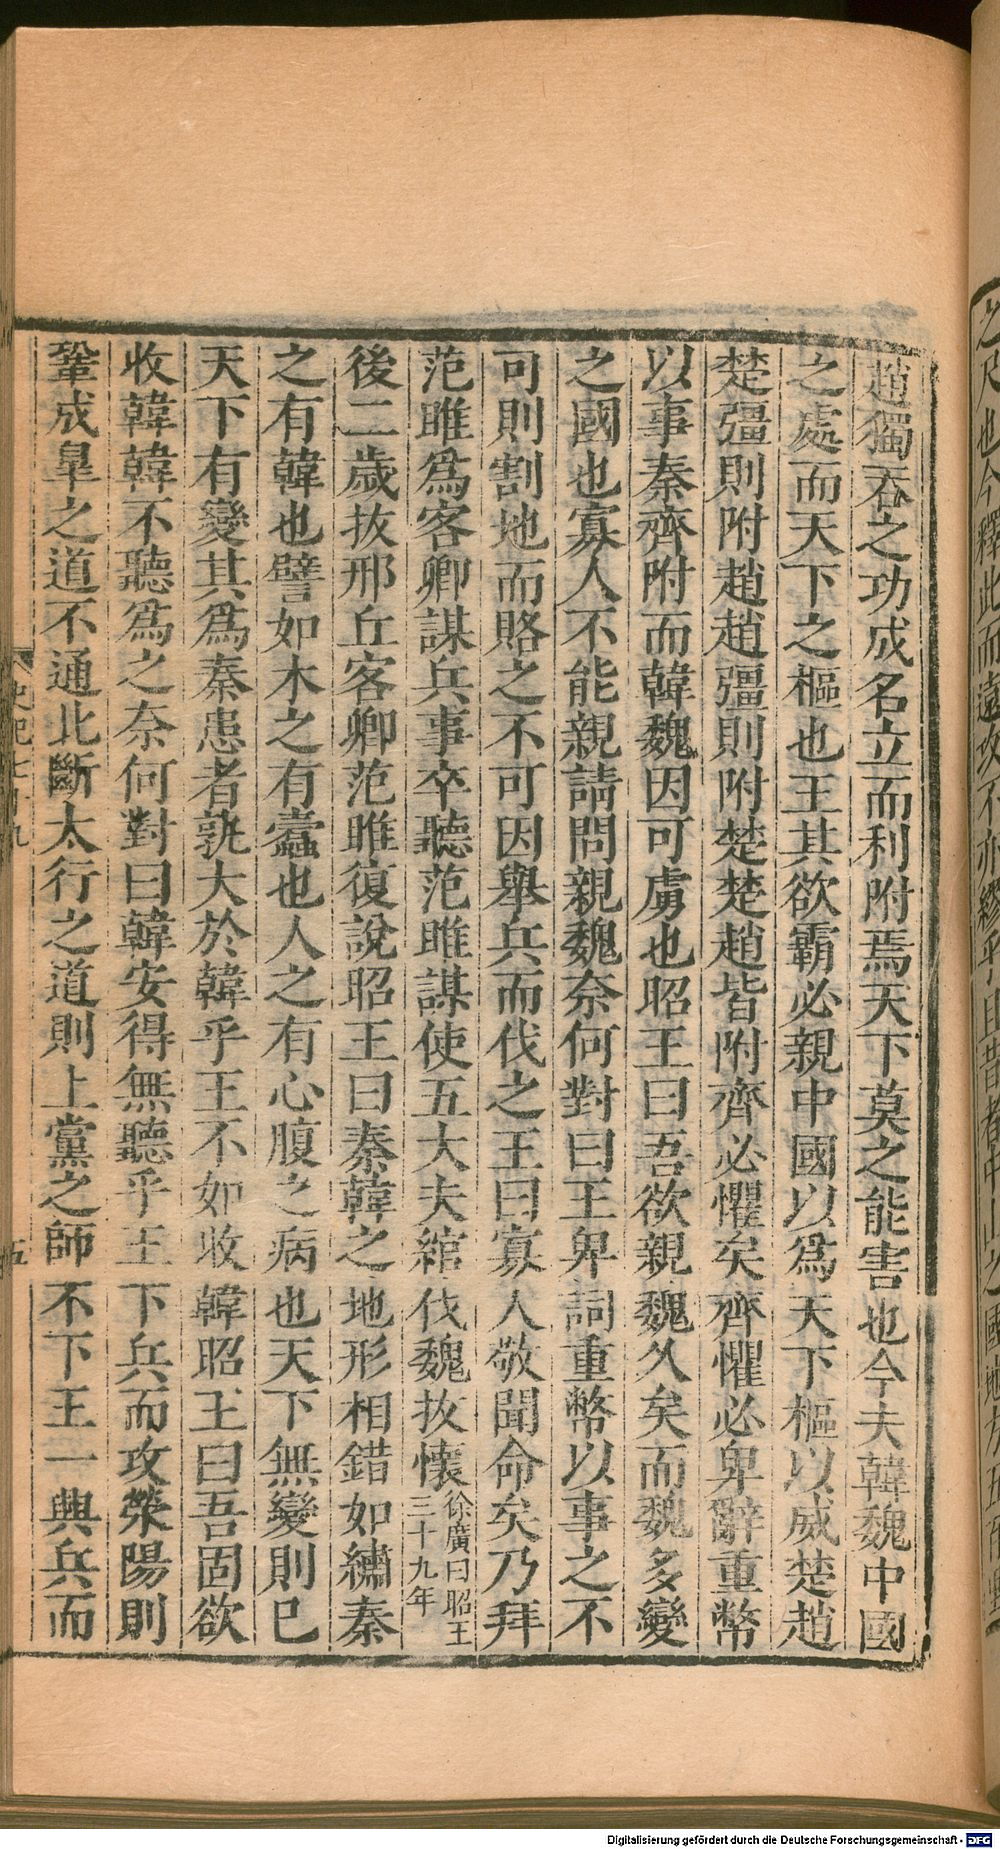 趙獨吞之功成名立而利附焉天下莫之能害也今夫韓魏中國
之處而天下之樞也王其欲霸必親中國以爲天下樞以威楚趙
楚彊則附趙趙彊則附楚楚趙皆附齊必懼矣齊懼必卑辭重幣
以事秦齊附而韓魏因可虜也昭王曰吾欲親魏久矣而魏多變
之國也寡人不能親請問親魏奈何對曰王卑詞重幣以事之不
可則割地而賂之不可因舉兵而伐之王曰寡人敬聞命矣乃拜
范雎爲客卿謀兵事卒聽范雎謀使五大夫綰伐魏拔懷徐廣曰昭王三十九年
後二歲拔邢丘客卿范雎復說昭王曰秦韓之地形相錯如繡秦
之有韓也譬如木之有蠹也人之有心腹之病也天下無變則已
天下有變其爲秦患者孰大於韓乎王不如收韓昭王曰吾固欲
收韓韓不聽爲之奈何對曰韓安得無聽乎王下兵而攻滎陽則
鞏成臯之道不通北斷太行之道則上黨之師不下王一興兵而
史記七十九
五
之尺也今釋此而遠攻不亦繆乎且昔者中山之國地方五百里
Digitalisierung gefördert durch die Deutsche Forschungsgemeinschaft - DFG